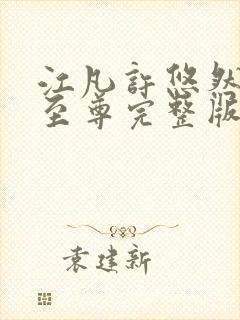 江凡許悠然
至尊完整版
袁建新